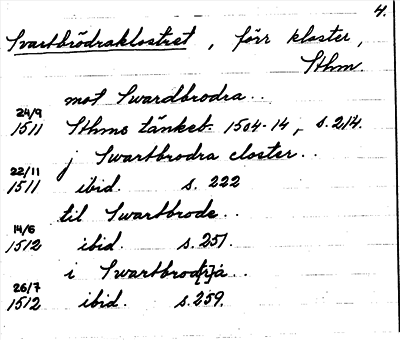 4.
Svartbrödraklostret, förr kloster,
Sthm.
mot Swardbrodra..
24/9
1511 Sthms tänkeb. 1504-14, s. 214.
j Swartbrodra closter..
22/11
1511 ibid. s. 222
til Swartbrode..
14/6
1512 ibid. s. 251.
i Swartbrod[r]a..
26/7
1512 ibid. s. 259.